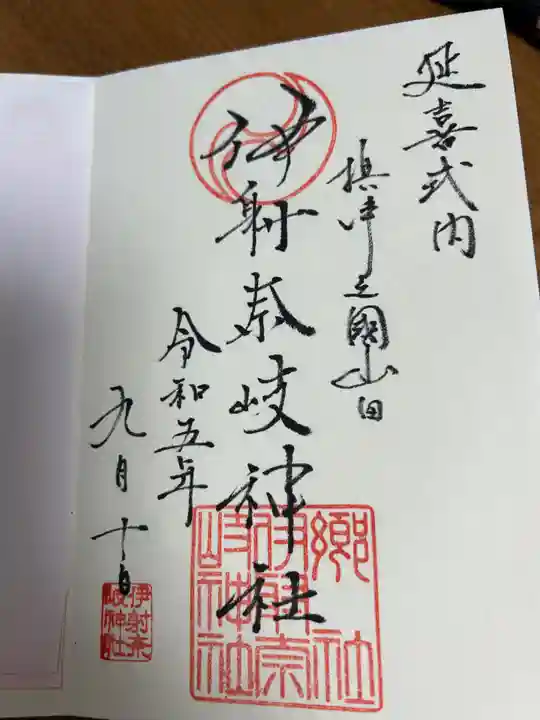 延喜式内
摂津之國山田
伊射奈岐神社
令和五年
九月十日
郷社
伊射奈
岐神社
伊射奈
岐神社